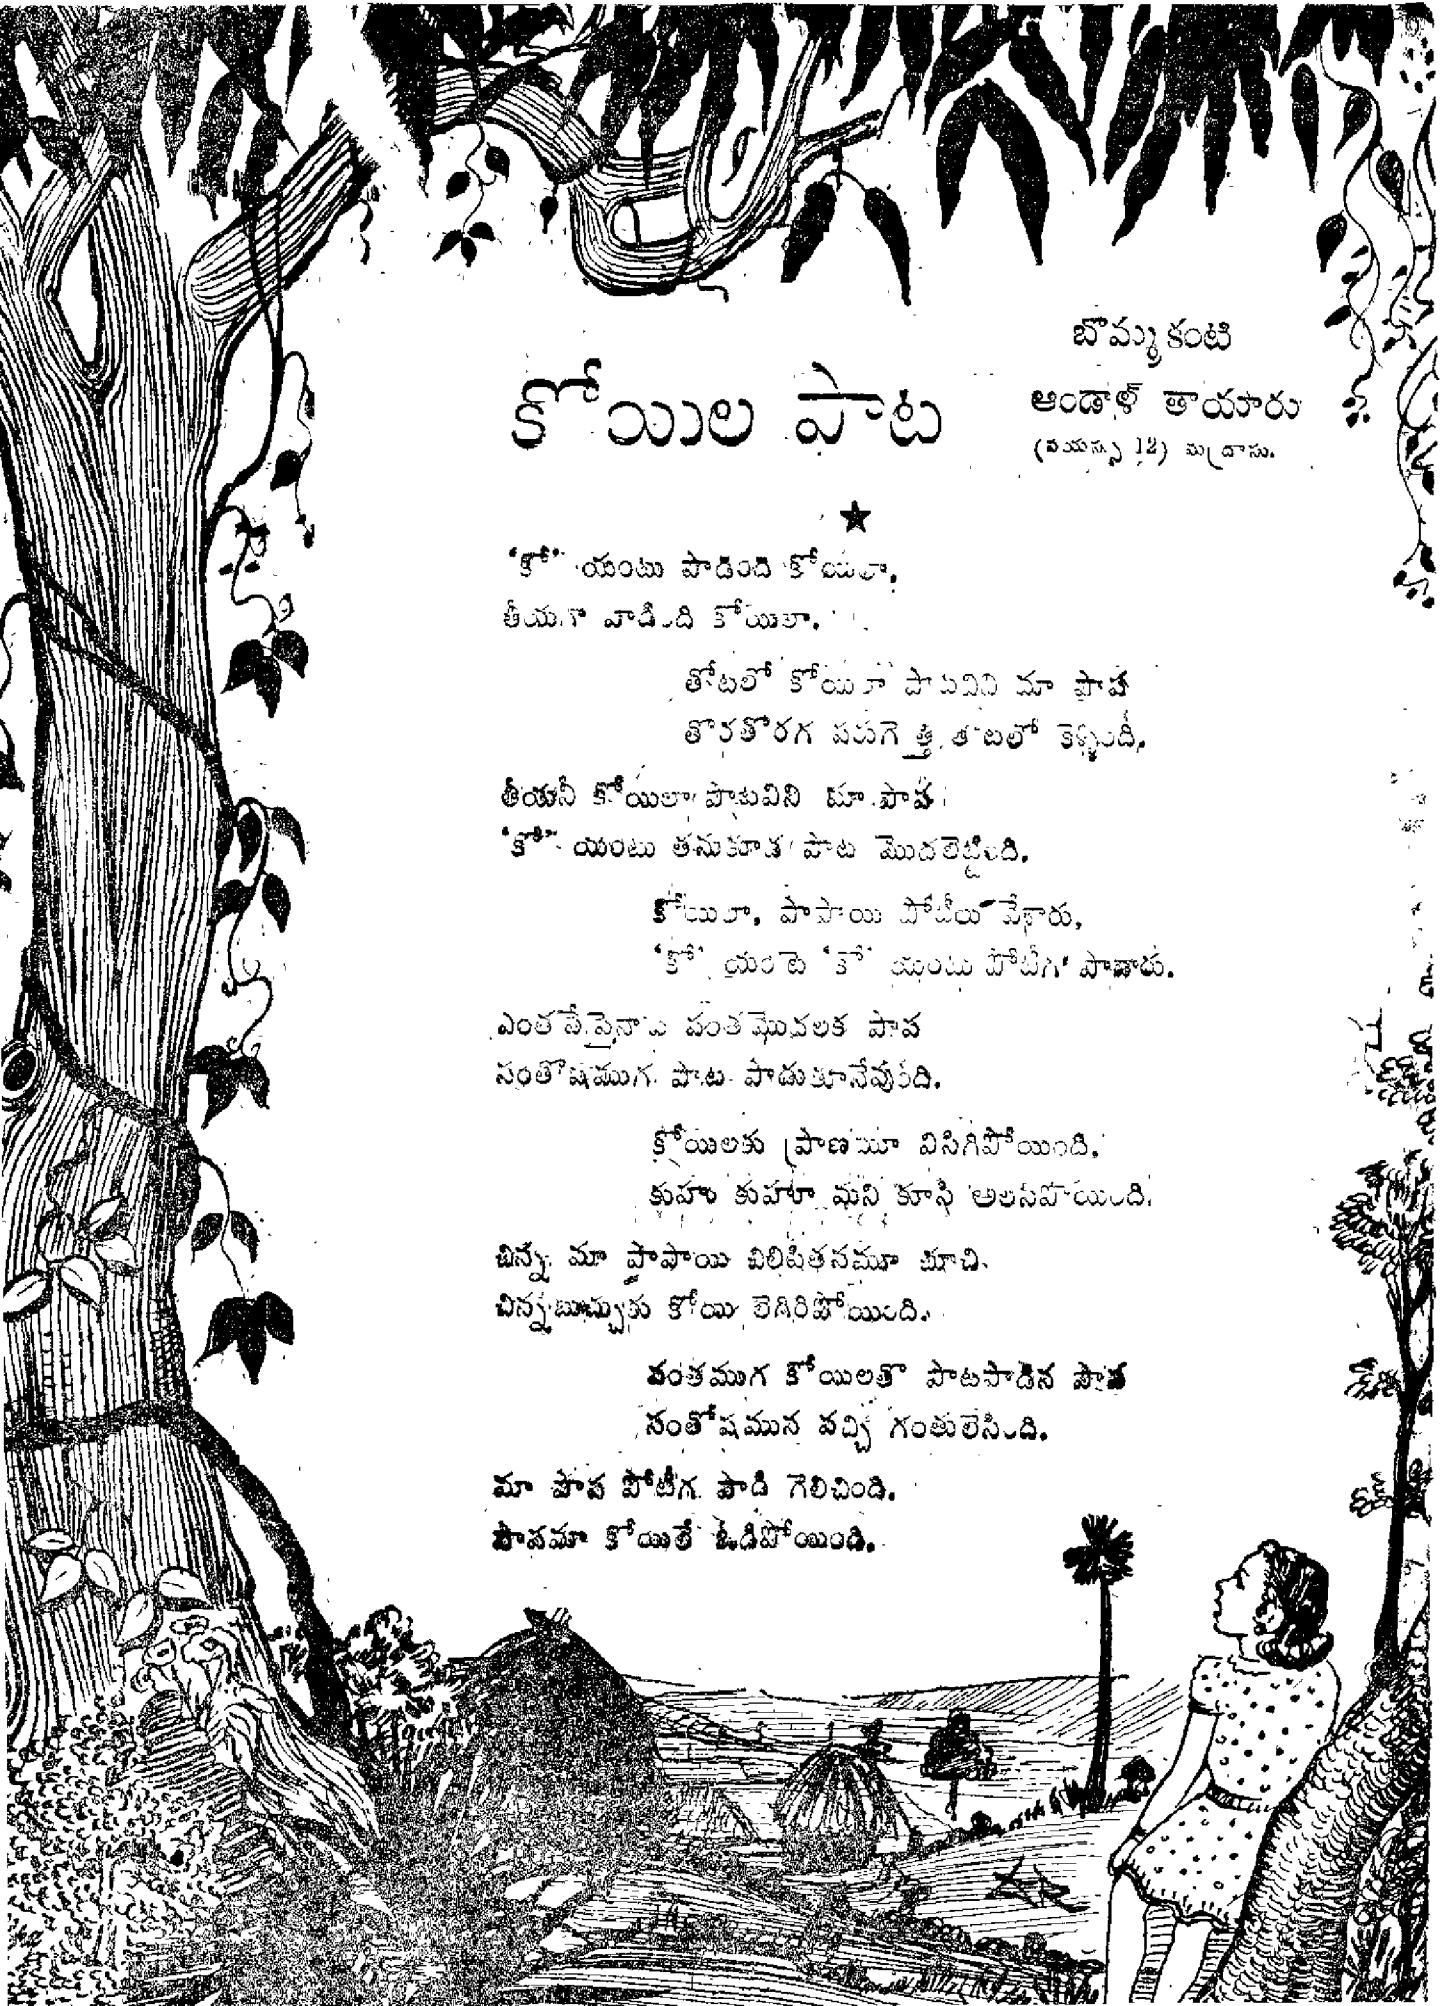 కోయిల పాట
బొమ్మకంటి
ఆండాళ్ తాయారు
(వయస్సు 12) మద్రాసు.
'కో' యంటు పాడింది కోయిలా,
తీయగా పాడింది కోయిలా.
తోటలో కోయిలా పాటవిని మా పాప
తొరతొరగ పరుగెత్తి తోటలో కెళ్ళింది.
తీయనీ కోయిలా పాటవిని మా పాప
'కో' యంటు తనుకూడ పాట మొదలెట్టింది.
కోయిలా, పాపాయి పోటీలు వేశారు,
'కో' యంటె 'కో' యంటు పోటీగ పాడారు.
ఎంత సేపైనాను పంతమొదలక పాప
సంతోషముగ పాట పాడుకూనేవుంది.
కోయిలకు ప్రాణమూ విసిగిపోయింది.
కుహూ కుహూ మని కూసి అలసిపోయింది.
చిన్న మా పాపాయి చిలిపితనమూ చూచి
చిన్నబుచ్చుకు కోయి లెగిరిపోయింది.
పంతముగ కోయిలతొ పాటపాడిన పాప
సంతోషమున వచ్చి గంతులేసింది.
మా పాప పోటీగ పాడి గెలిచింది.
పాపమా కోయిలే ఓడిపోయింది.